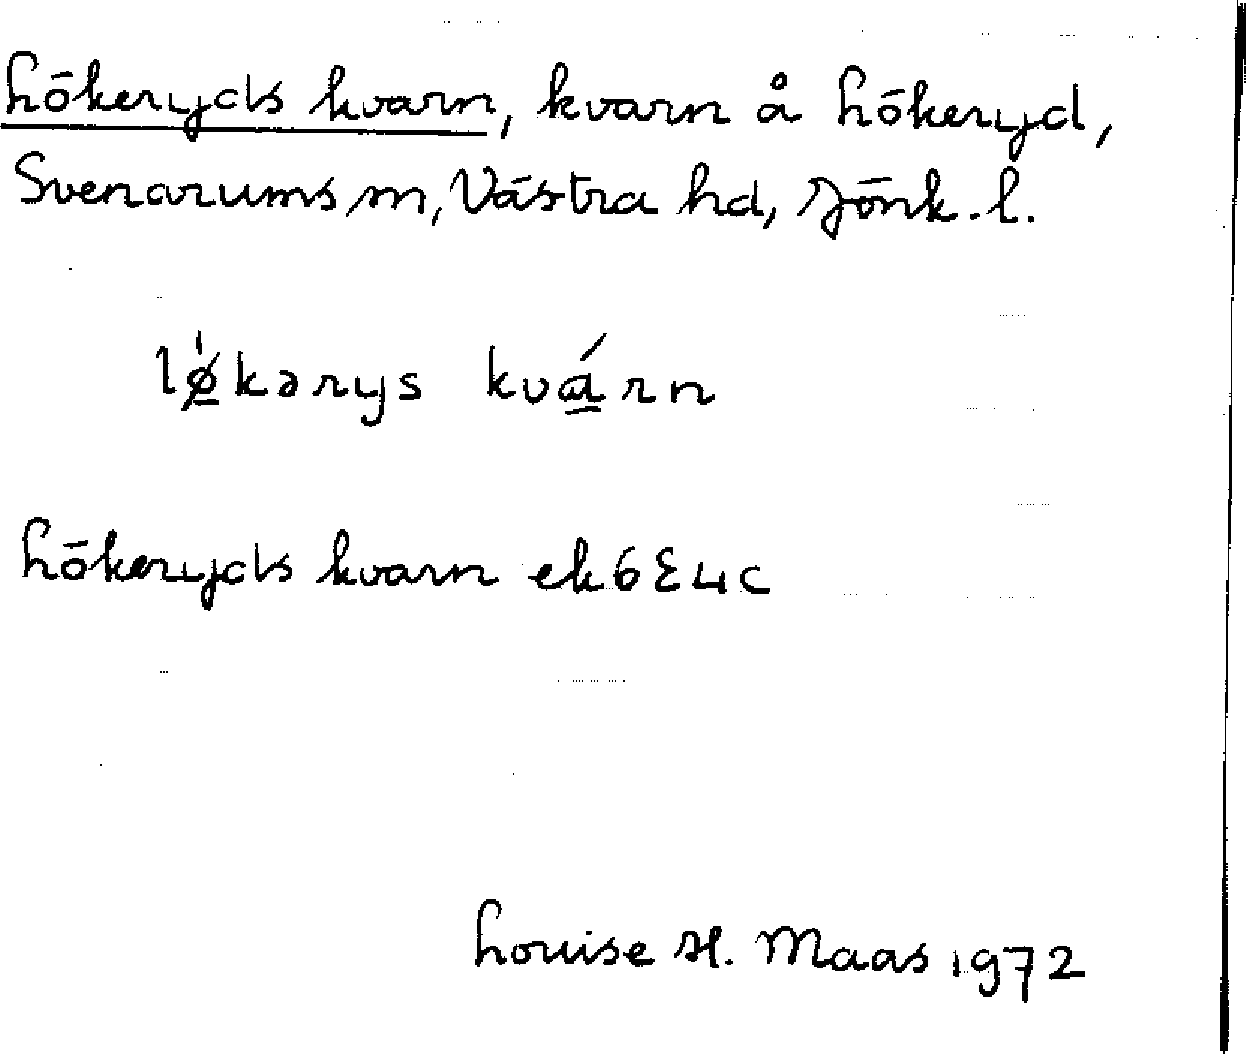 Lökeryds kvarn, kvarn å Lökeryd,
Svenarums sn, Västra hd, Jönk. l.
lø̲̍kərys kvá̲rn
Lökeryds kvarn ek 6E4c
Louise H. Maas 1972